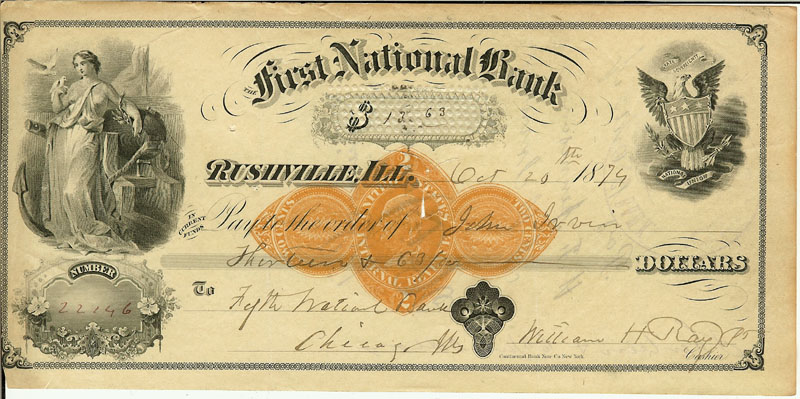 THE First National Bank
$ 13.63
RUSHVILLE, ILL. Oct 20th 1874
IN CURRENT FUNDS
Pay to the order of John Irvin
Thirteen & 63/100 DOLLARS
NUMBER
22146
To Fifth National Bank
Chicago Ills
William H. Ray
Cashier
Continental Bank Note Co New York
STATE SOVEREIGNTY
NATIONAL UNION
2
TWO CENTS